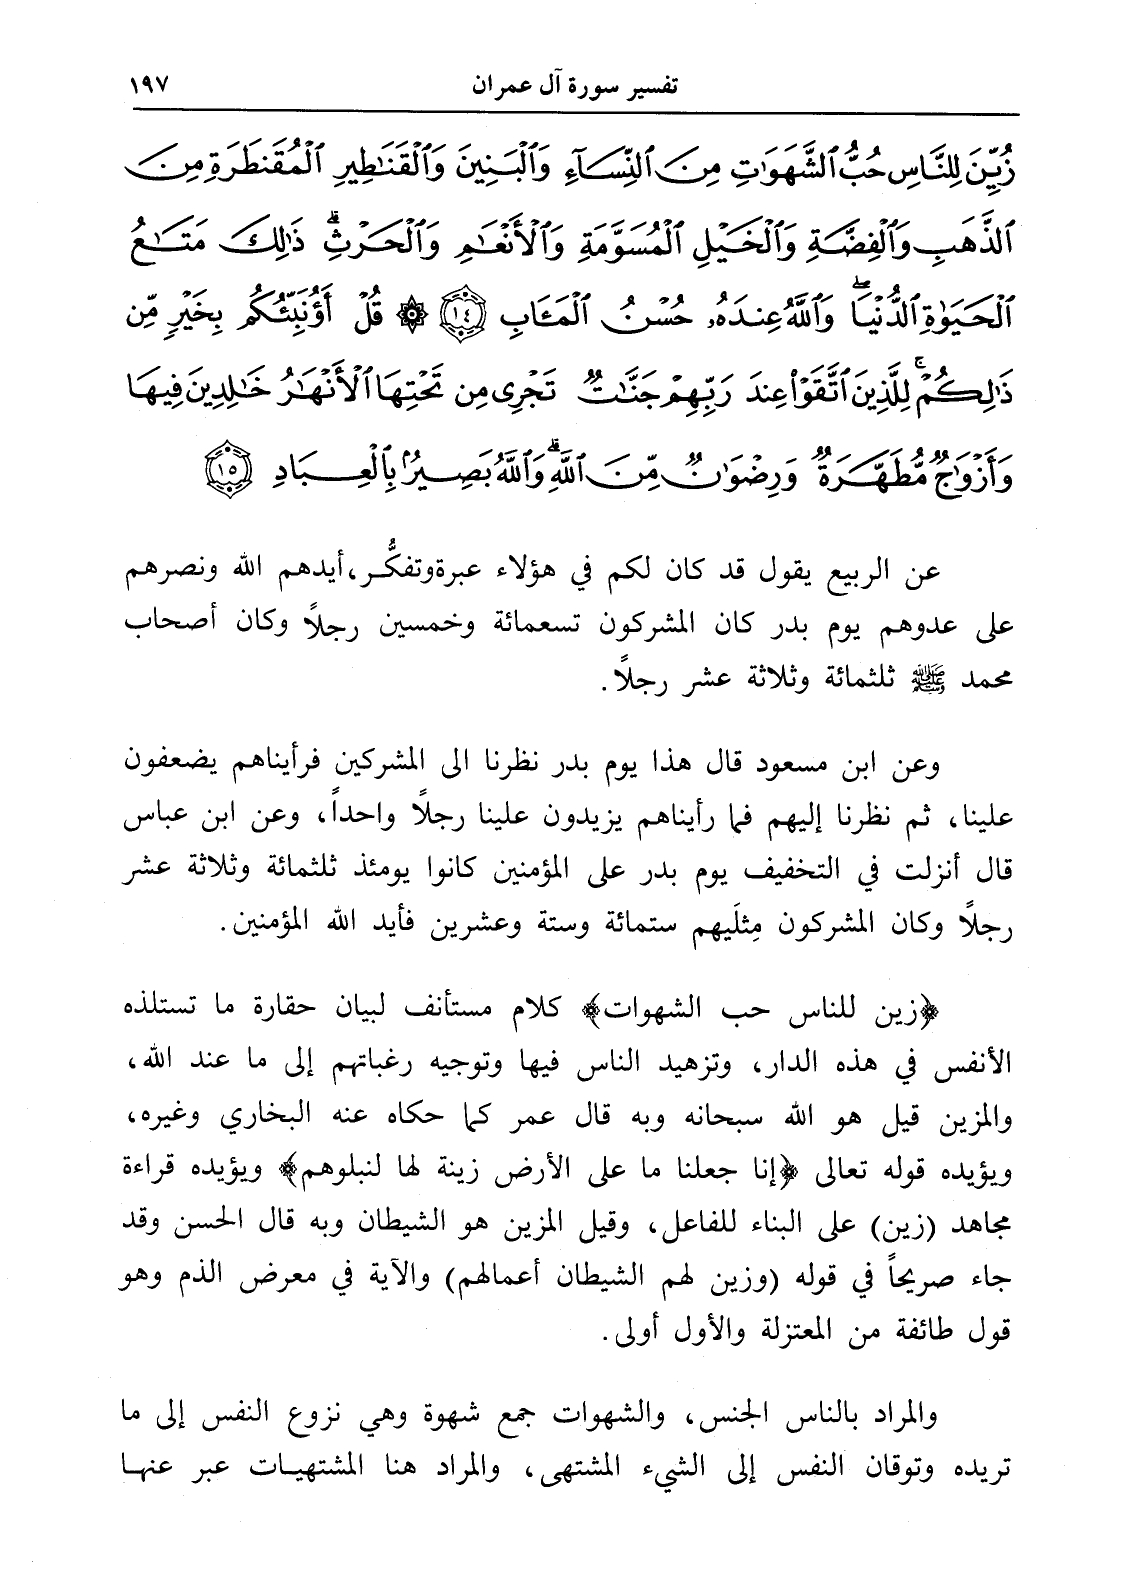 تفسير سورة آل عمران ١٩٧
زُيِّنَ لِلنَّاسِ حُبُّ ٱلشَّهَوَٰتِ مِنَ ٱلنِّسَآءِ وَٱلْبَنِينَ وَٱلْقَنَٰطِيرِ ٱلْمُقَنطَرَةِ مِنَ
ٱلذَّهَبِ وَٱلْفِضَّةِ وَٱلْخَيْلِ ٱلْمُسَوَّمَةِ وَٱلْأَنْعَٰمِ وَٱلْحَرْثِ ۗ ذَٰلِكَ مَتَٰعُ
ٱلْحَيَوٰةِ ٱلدُّنْيَا ۖ وَٱللَّهُ عِندَهُۥ حُسْنُ ٱلْمَـَٔابِ ١٤ ۞ قُلْ أَؤُنَبِّئُكُم بِخَيْرٍ مِّن
ذَٰلِكُمْ ۚ لِلَّذِينَ ٱتَّقَوْا۟ عِندَ رَبِّهِمْ جَنَّٰتٌ تَجْرِى مِن تَحْتِهَا ٱلْأَنْهَٰرُ خَٰلِدِينَ فِيهَا
وَأَزْوَٰجٌ مُّطَهَّرَةٌ وَرِضْوَٰنٌ مِّنَ ٱللَّهِ ۗ وَٱللَّهُ بَصِيرٌۢ بِٱلْعِبَادِ ١٥
عن الربيع يقول قد كان لكم في هؤلاء عبرة وتفكُّر، أيدهم الله ونصرهم
على عدوهم يوم بدر كان المشركون تسعمائة وخمسين رجلاً وكان أصحاب
محمد ﷺ ثلثمائة وثلاثة عشر رجلاً.
وعن ابن مسعود قال هذا يوم بدر نظرنا الى المشركين فرأيناهم يضعفون
علينا، ثم نظرنا إليهم فما رأيناهم يزيدون علينا رجلاً واحداً، وعن ابن عباس
قال أنزلت في التخفيف يوم بدر على المؤمنين كانوا يومئذ ثلثمائة وثلاثة عشر
رجلاً وكان المشركون مِثلَيهم ستمائة وستة وعشرين فأيد الله المؤمنين.
﴿زين للناس حب الشهوات﴾ كلام مستأنف لبيان حقارة ما تستلذه
الأنفس في هذه الدار، وتزهيد الناس فيها وتوجيه رغباتهم إلى ما عند الله،
والمزين قيل هو الله سبحانه وبه قال عمر كما حكاه عنه البخاري وغيره،
ويؤيده قوله تعالى ﴿إنا جعلنا ما على الأرض زينة لها لنبلوهم﴾ ويؤيده قراءة
مجاهد (زين) على البناء للفاعل، وقيل المزين هو الشيطان وبه قال الحسن وقد
جاء صريحاً في قوله (وزين لهم الشيطان أعمالهم) والآية في معرض الذم وهو
قول طائفة من المعتزلة والأول أولى.
والمراد بالناس الجنس، والشهوات جمع شهوة وهي نزوع النفس إلى ما
تريده وتوقان النفس إلى الشيء المشتهى، والمراد هنا المشتهيات عبر عنها